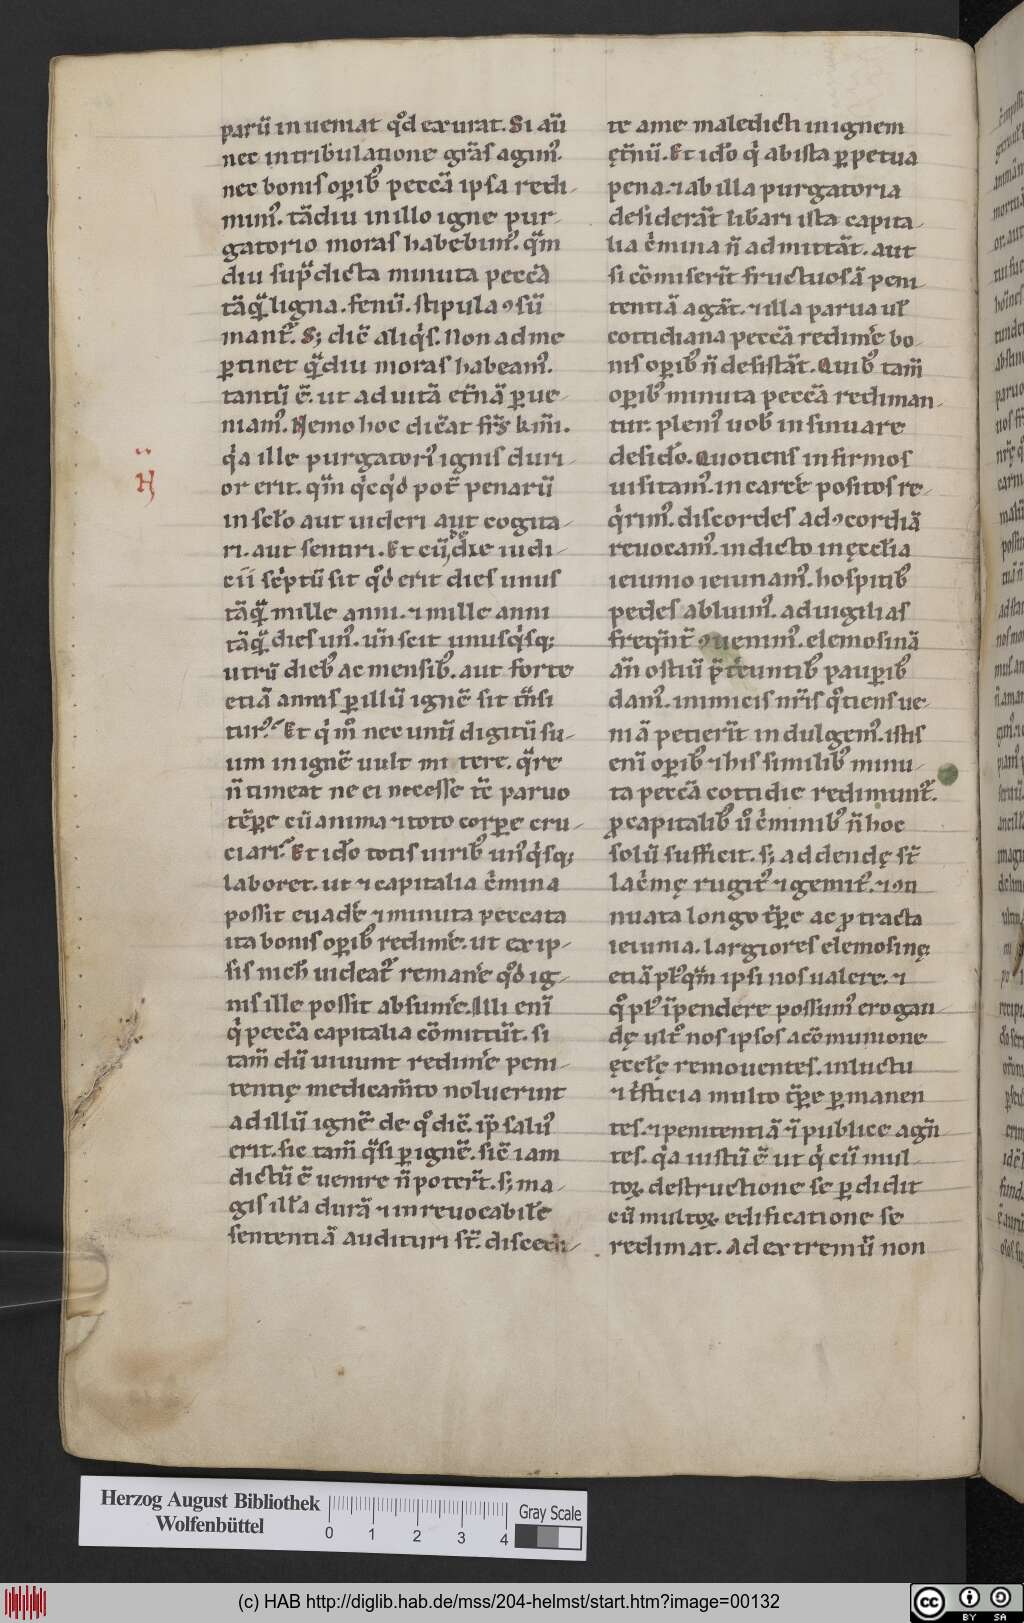 parū inueniat qͦd exurat. Si aū
nec in tribulatione gr̄as agim᷒.
nec bonis oꝑib᷒ peccā ipsa redi-
mim᷒. tādiu in illo igne pur-
gatorio moras habebim᷒. qͣm
diu sup̄dicta minuta peccā
tāqͣ ligna. fenū. stipula ꝯsū
mant᷑. S; dic̄ aliqͥs. Non ad me
ꝑtinet qͣdiu moras habeam᷒.
tantū ē. ut ad uitā et̄nā ꝑue-
niam᷒. Nemo hoc dicat fr̄s km̄i.
N
qͥa ille purgatori᷒ ignis duri-
or erit. qm̄ qͥcqͥd pot̄ penarū
in sclo aut uideri aut cogita-
ri. aut sentiri. Et cū de die iudi-
cii sc̄ptū sit qͦd erit dies unus
tāqͣ mille anni. ⁊ mille anni
tāqͣ dies un᷒. un̄ scit unusqͥsq;
utrū dieb᷒ ac mensib᷒. aut forte
etiā annis ꝑ illū ignē sit tͣnsi
tur᷒. Et qͥ mͦ nec unū digitū su-
um in ignē uult mittere. qͣre
n̄ timeat ne ei necesse sit paruo
tēꝑe cū anima ⁊ toto corꝑe cru-
ciari. Et ido totis uirib᷒ un᷒qͥsq;
laboret. ut ⁊ capitalia cͥmina
possit euadē ⁊ minuta peccata
ita bonis oꝑib᷒ redimē. ut ex ip-
sis nich uideat᷑ remanē qͦd ig-
nis ille possit absumē. Illi enī
qͥ peccā capitalia cōmittūt. si
tam̄ dū uiuunt redimē peni-
tentię medicam̄to noluerint
ad illū ignē de qͦ dic̄. ip̄ salu᷒
erit. sic tam̄ qͣsi ꝑ ignē. sic̄ iam
dictū ē uenire n̄ potert̄. s; ma-
gis illa durā ⁊ inreuocabile
sententiā audituri st̄. discedi-
te a me maledicti in ignem
ęt̄nū. Et ido qͥ ab ista ꝑpetua
pena. ⁊ ab illa purgatoria
desiderāt libari ista capita-
lia cͥmina n̄ admittāt. aut
si cōmiserīt fructuosā peni
tentiā agāt. ⁊ illa parua uł
cottidiana peccā redimē bo-
nis oꝑib᷒ n̄ desistāt. Quib᷒ tam̄
oꝑib᷒ minuta peccā rediman-
tur. pleni᷒ uob insinuare
desido. Quotiens infirmos
uisitam᷒. in carcē positos re-
qͥrim᷒. discordes ad ꝯcordiā
reuocam᷒. indicto in ęcclia
ieiunio ieiunam᷒. hospitib᷒
pedes abluim᷒. ad uigilias
freqn̄t ꝯuenim᷒. elemosinā
an̄ ostiū p̄tͤeuntib᷒ pauꝑib᷒
dam᷒. inimicis nr̄is qͦtiens ue-
niā petierīt indulgem᷒. istis
enī oꝑib᷒ ⁊ his similib᷒ minu-
ta peccā cottidie redimunt᷑.
ꝓ capitalib᷒ uͦ cͥminib᷒ n̄ hoc
solū sufficit. s; addendę st̄
lacͥmę rugit᷒ ⁊ gemit᷒. ⁊ ꝯti
nuata longo tꝑe ac ꝓtracta
ieiunia. largiores elemosinę
etiā pl᷒qm̄ ipsi nos ualere. ⁊
qͦ pl᷒ īpendere possum᷒ erogan-
dę ult᷒ nos ipsos a cōmunione
ęcclę remouentes. in luctu
⁊ tͥsticia multo tꝑe ꝑmanen
tes. ⁊ penitentiā ī publice agn̄
tes. qͥa iustū ē ut qͥ cū mul-
toꝝ destructione se ꝑdidit
cū multoꝝ edificatione se
redimat. Ad extremū non
Herzog August Bibliothek
Wolfenbüttel
0 1 2 3 4
Gray Scale
(c) HAB http://diglib.hab.de/mss/204-helmst/start.htm?image=00132
cc BY SA